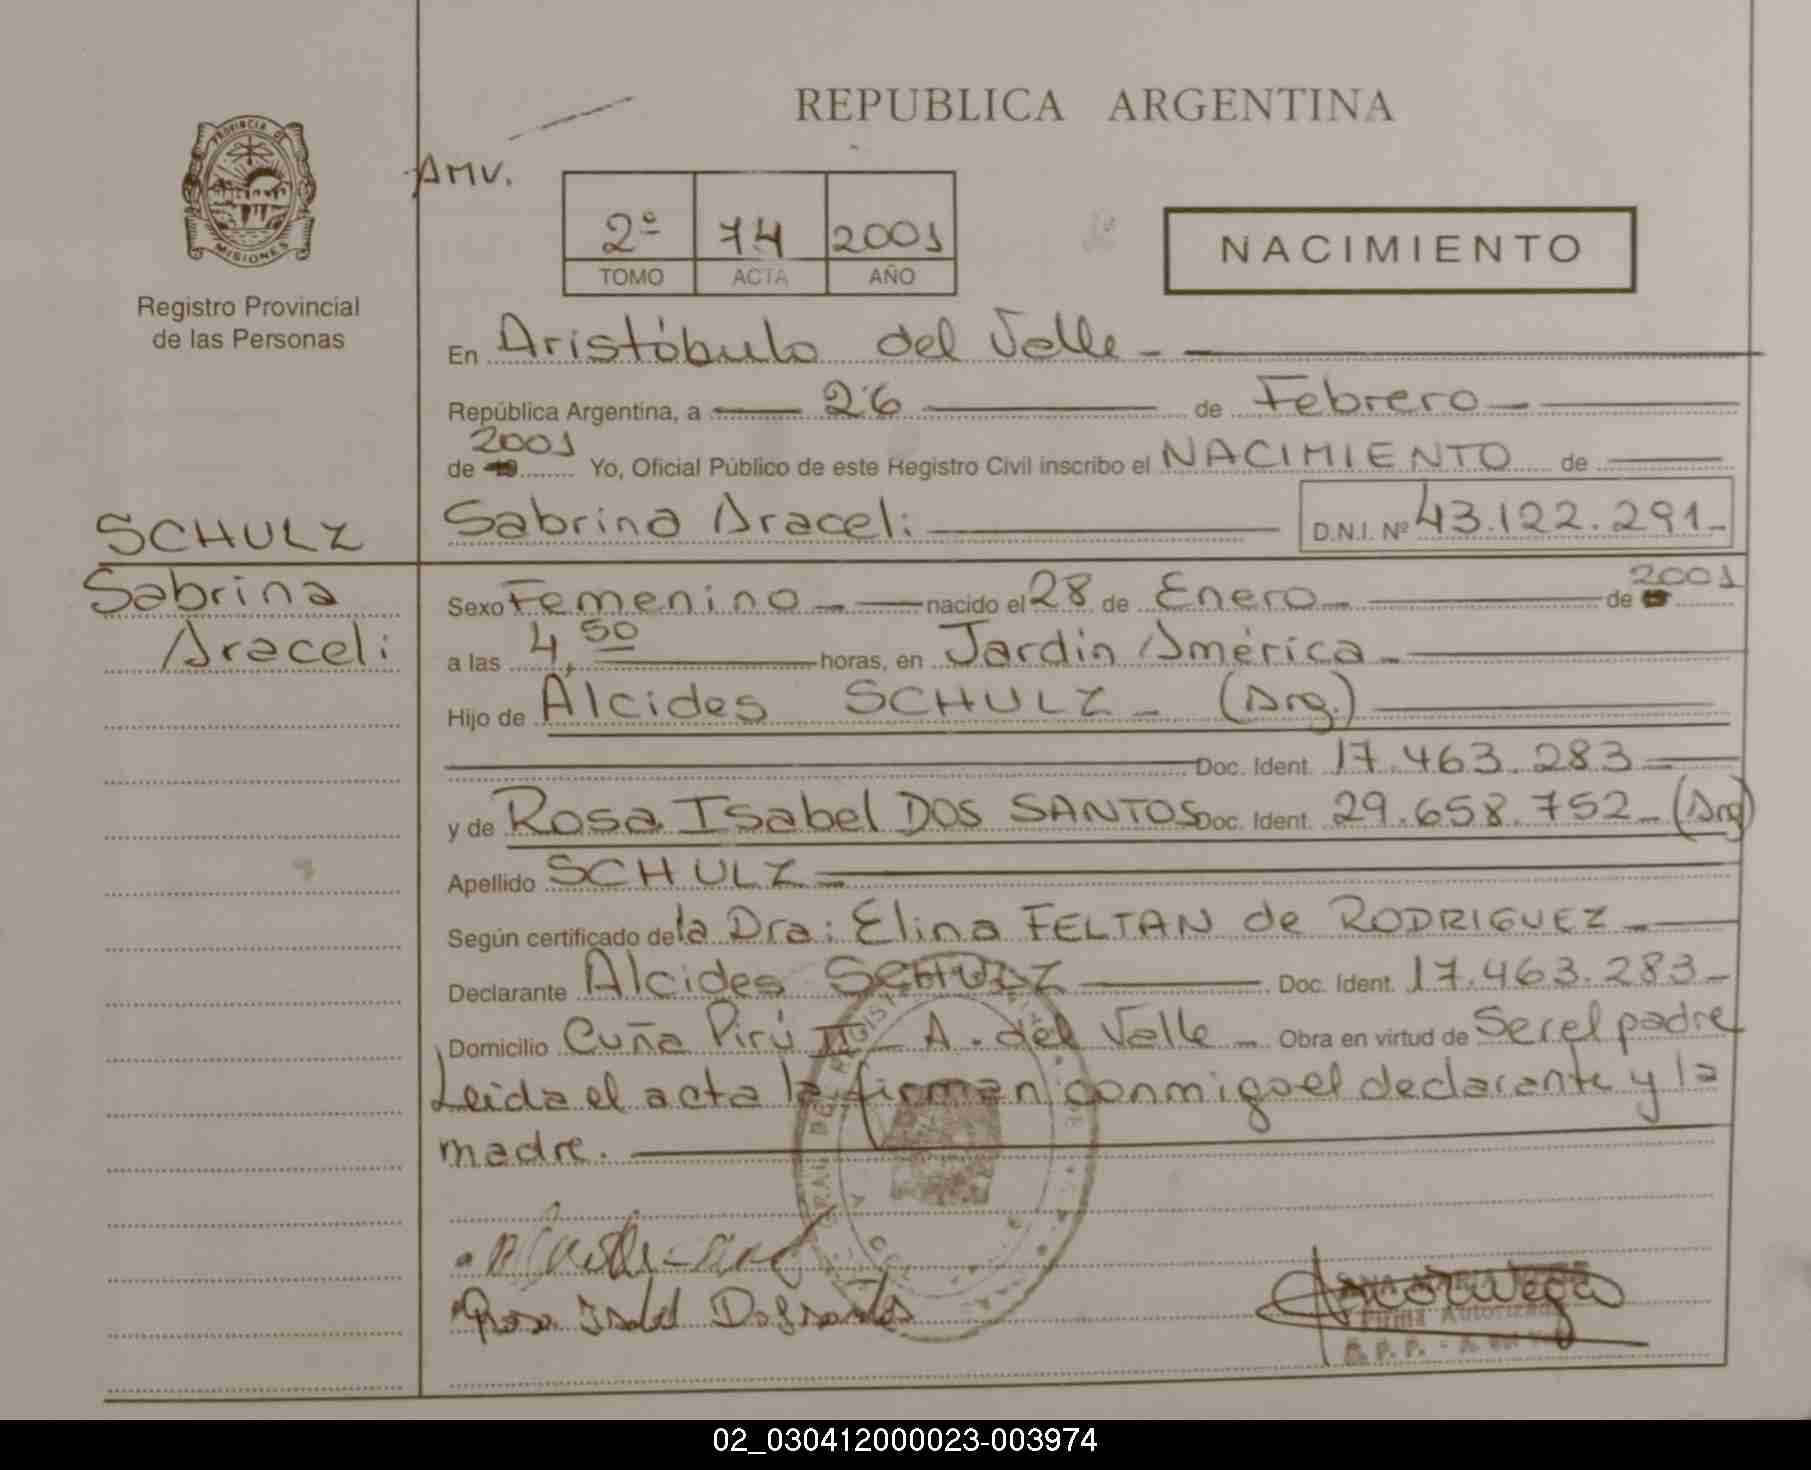 REPUBLICA ARGENTINA
PROVINCIA DE
MISIONES
Registro Provincial
de las Personas
AMV.
2º 74 2001
TOMO ACTA AÑO
NACIMIENTO
En Aristóbulo del Valle -
República Argentina, a 26 de Febrero
2001
de 19 Yo, Oficial Público de este Registro Civil inscribo el NACIMIENTO de
SCHULZ
Sabrina Araceli
Sabrina Araceli D.N.I. Nº 43.122.291-
Sexo Femenino nacido el 28 de Enero de 2001
a las 4,50 horas, en Jardín América -
Hijo de Alcides SCHULZ - (Arg.)
Doc. Ident. 17.463.283
y de Rosa Isabel DOS SANTOS Doc. Ident. 29.658.752 - (Arg)
Apellido SCHULZ
Según certificado de la Dra: Elina FELTAN de RODRIGUEZ
Declarante Alcides SCHULZ Doc. Ident. 17.463.283-
Domicilio Cuña Pirú II - A. del Valle - Obra en virtud de Ser el padre
Leida el acta la firman conmigo el declarante y la
madre.
Rosa Isabel Dossantos
Firma Autorizada
02_030412000023-003974